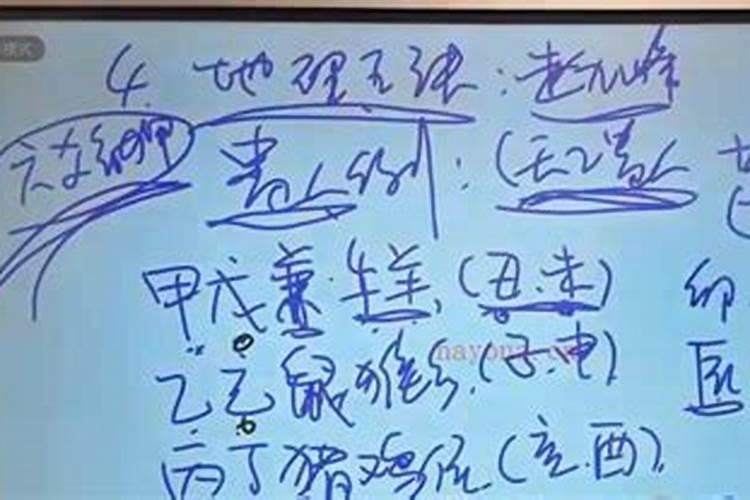 模式
4. 地理五诀：赵九峰
六爻纳甲 贵人例：(天乙贵人
甲戊兼牛羊，(丑.未) 卯
乙己鼠猴乡，(子.申)
丙丁猪鸡位 (亥.酉)，
nayona.cn